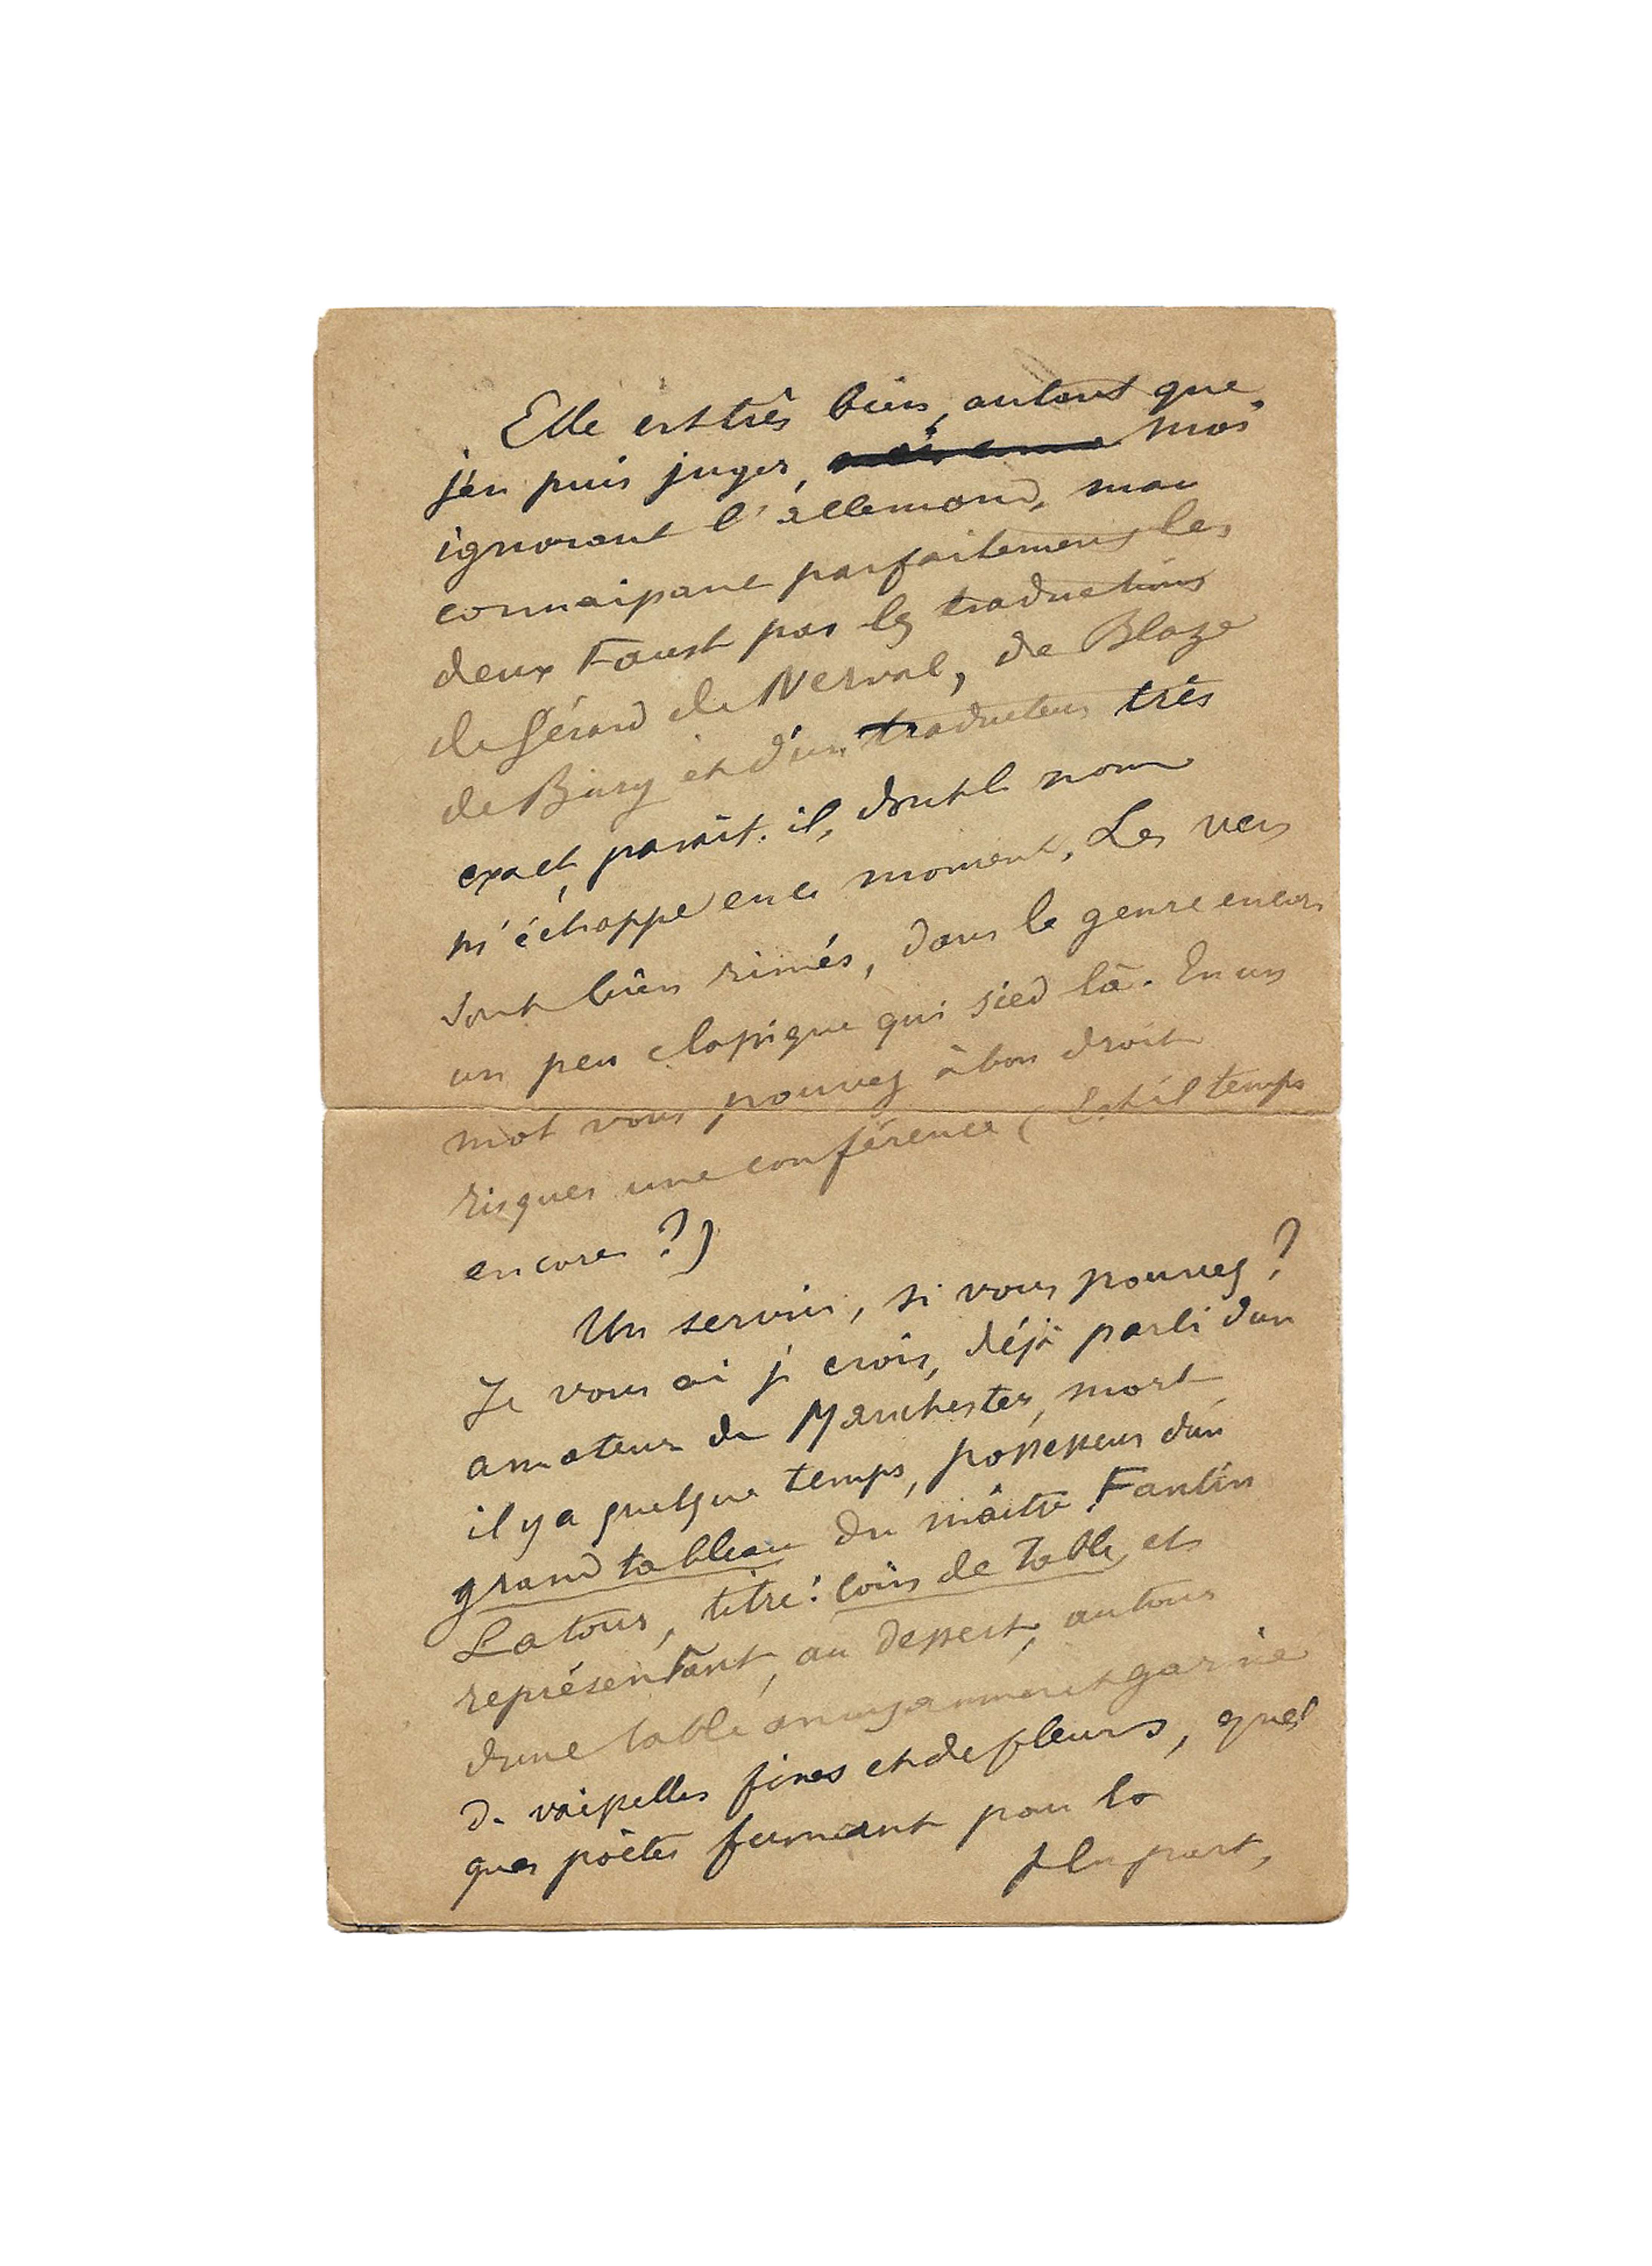 Elle est très bien, autant que
j'en puis juger, moi
ignorant l'allemand, mais
connaissant parfaitement les
deux Faust par les traductions
de Gérard de Nerval, de Blaze
de Bury et d'un traducteur très
exact, paraît-il, dont le nom
m'échappe en ce moment. Les vers
sont bien rimés, dans le genre encore
un peu classique qui sied là. En un
mot vous pouvez à bon droit
risquer une conférence (Est-il temps
encore ?)
Un service, si vous pouvez ?
Je vous ai je crois, déjà parlé d'un
amateur de Manchester, mort
il y a quelque temps, possesseur d'un
grand tableau du maître Fantin
Latour, titre : Coin de Table, et
représentant, au dessert, autour
d'une table garnie
de vaisselles fines et de fleurs, quel
ques poètes fumant pour la
plupart,